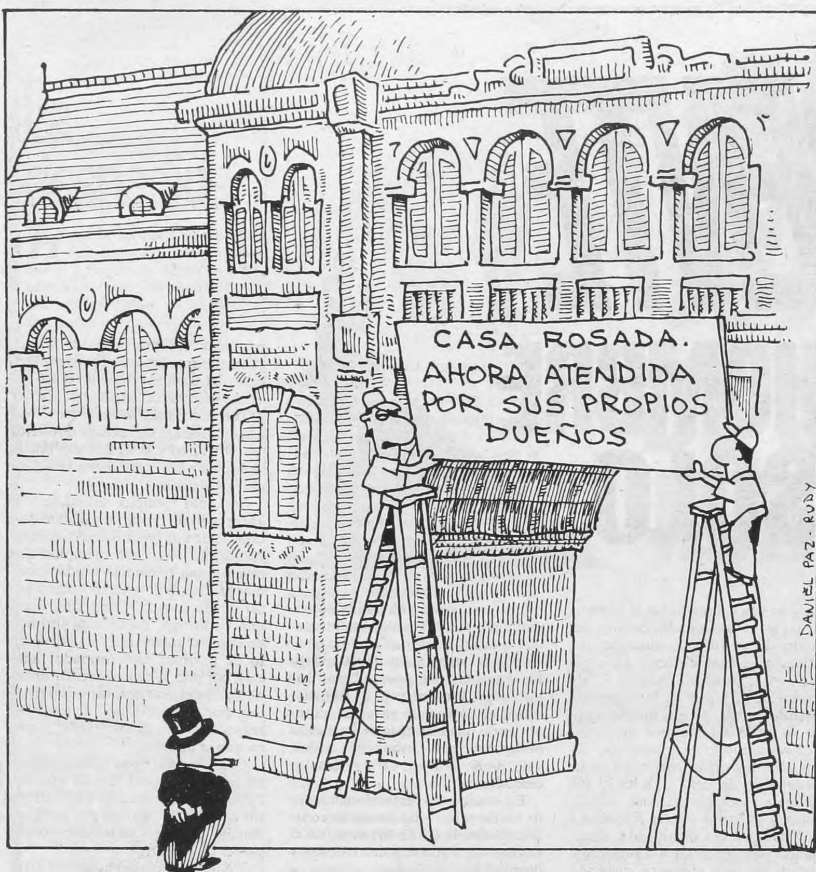 CASA ROSADA.
AHORA ATENDIDA
POR SUS PROPIOS
DUEÑOS
DANIEL PAZ - RUDY